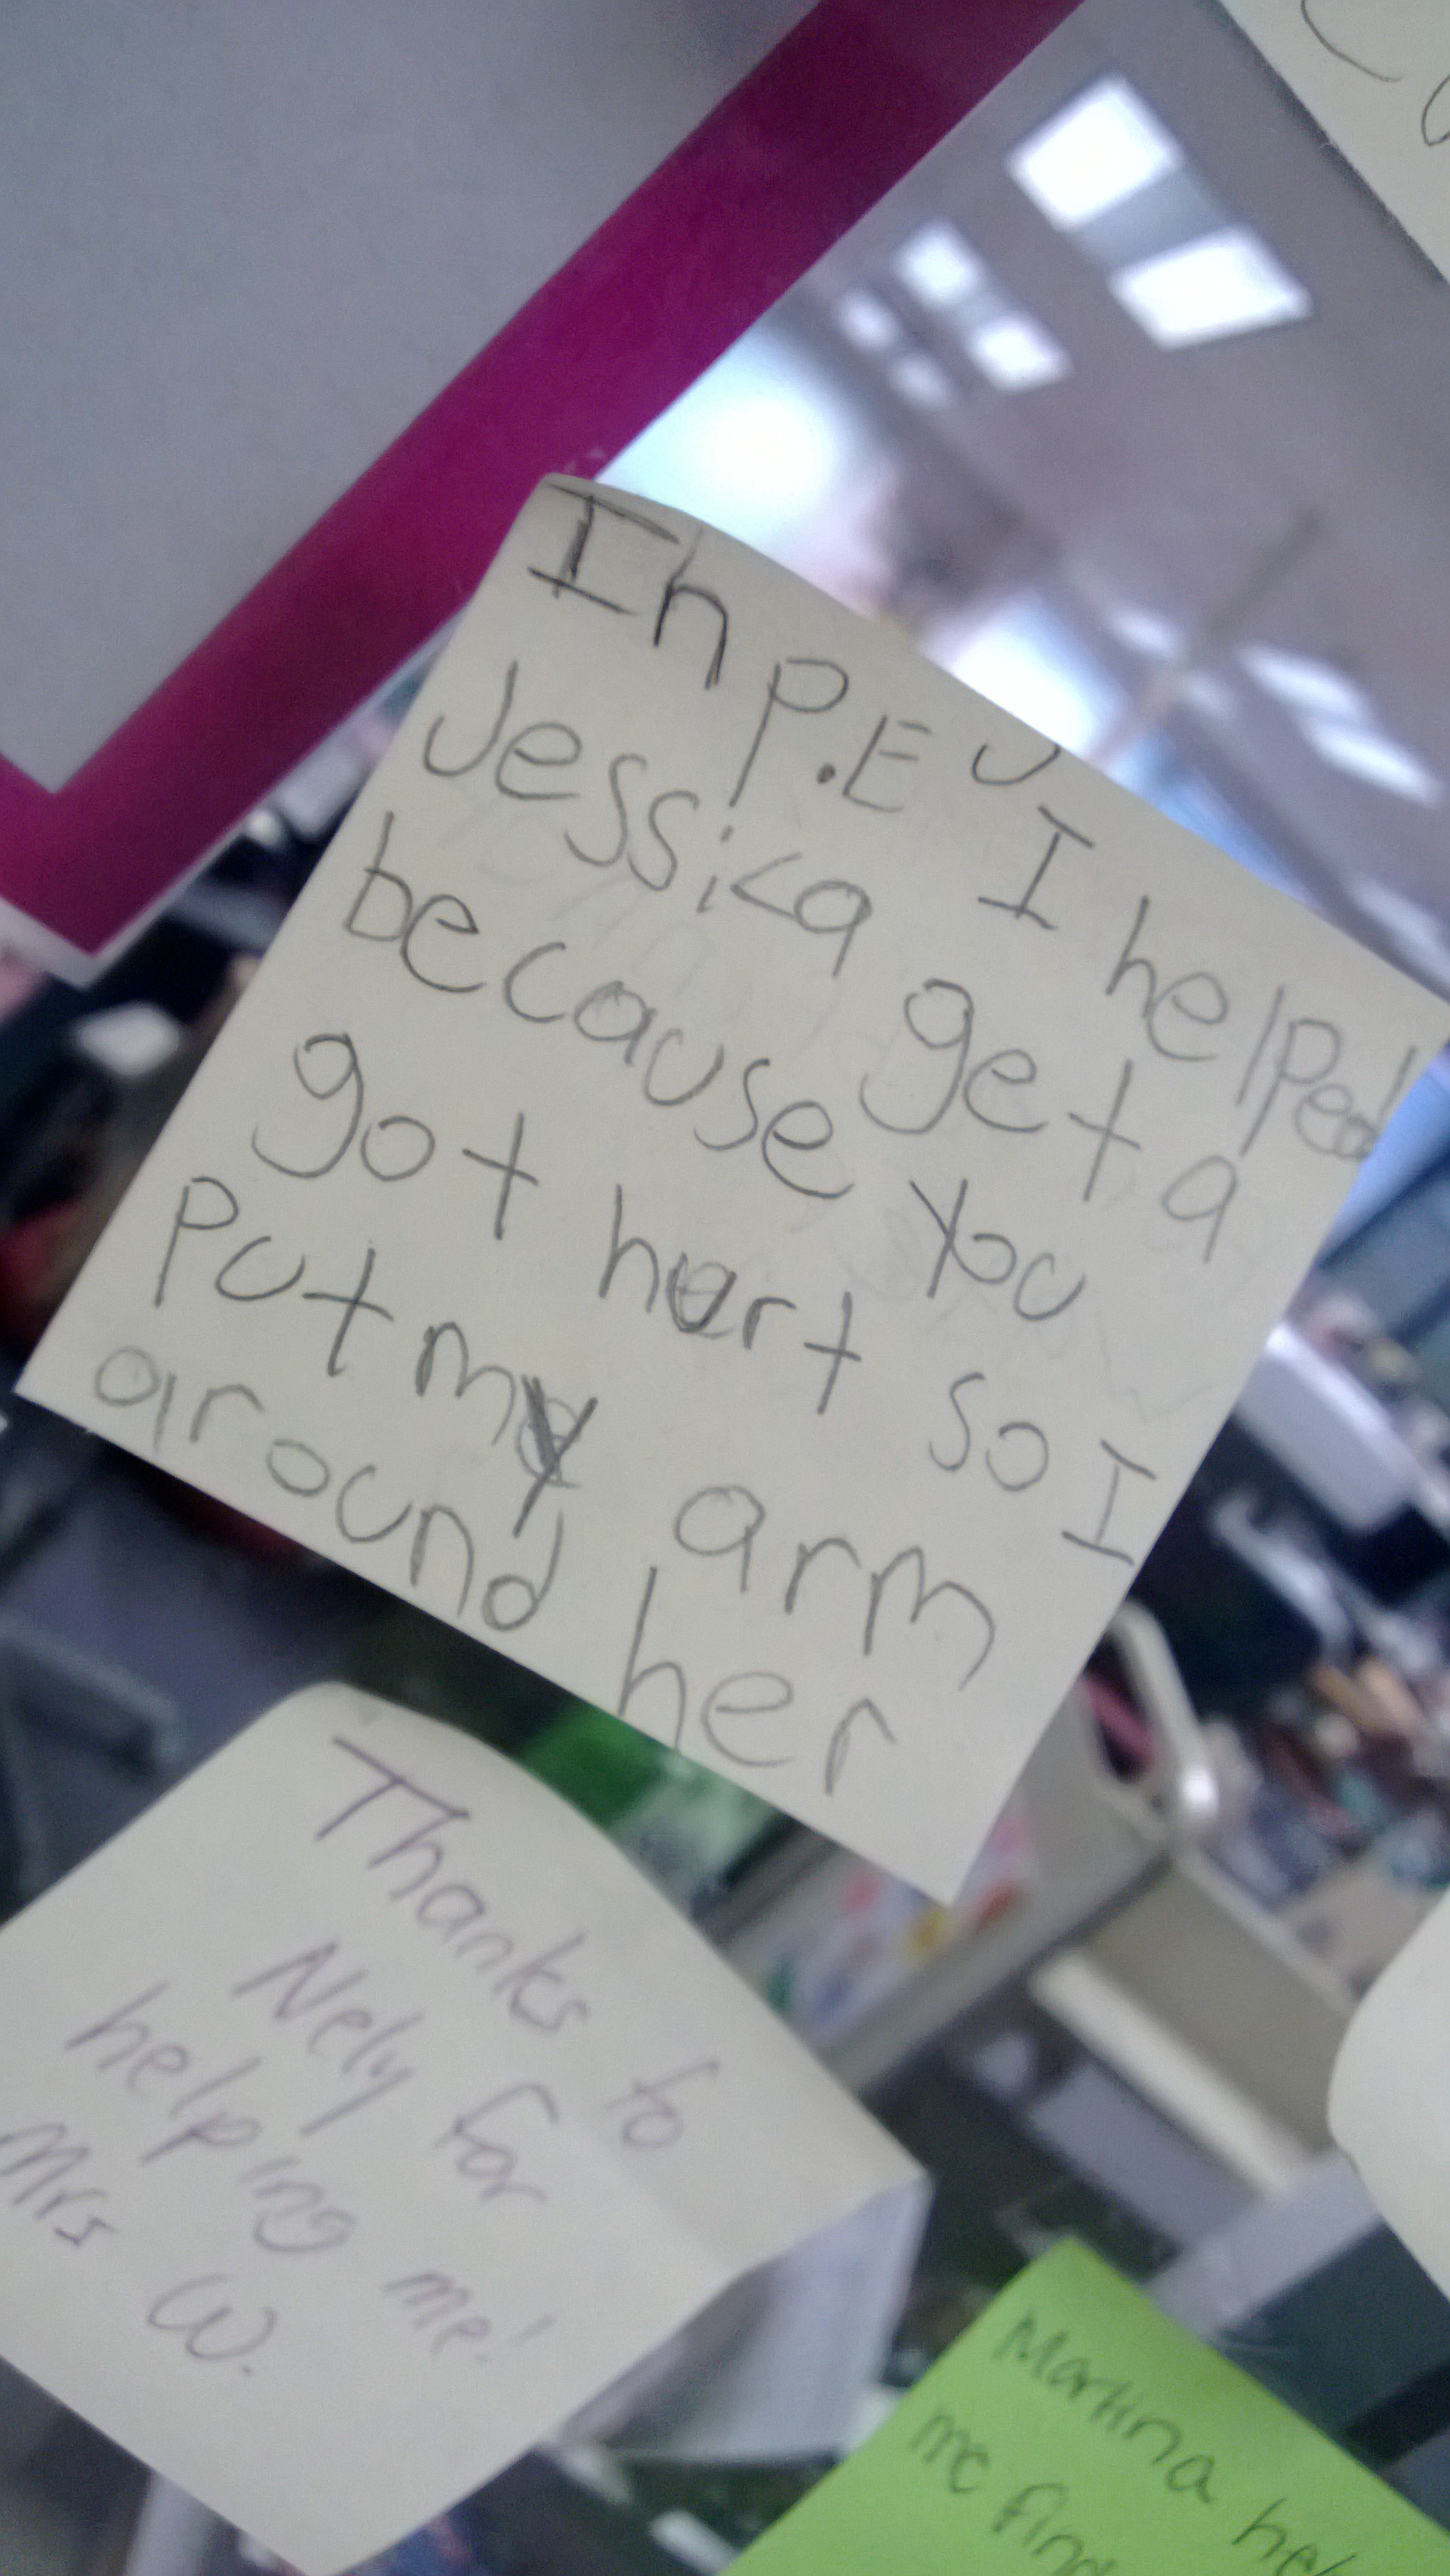 In P.E I helped
Jessica get a
because you
got hurt so I
put my arm
around her
Thanks to
Nely for
helping me!
Mrs W.
Martina
me